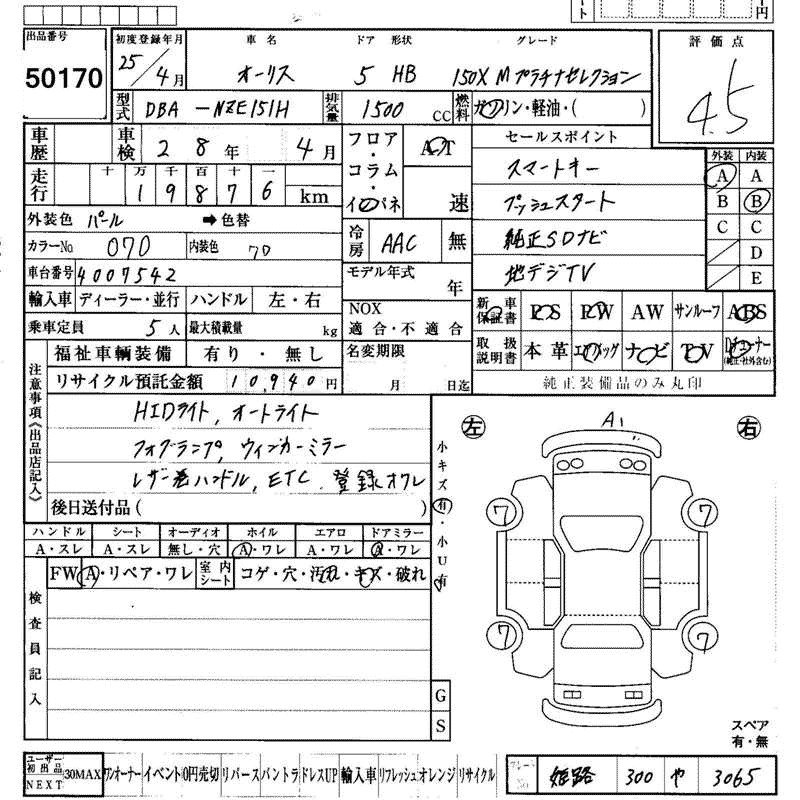 出品番号
50170
初度登録年月 車名 ドア 形状 グレード
25/4月 オーリス 5 HB 150X Mプラチナセレクション
評価点
4.5
型式 DBA-NZE151H 排気量 1500 CC 燃料 ガソリン・軽油・( )
車歴 車検 28年 4月
フロア・コラム・インパネ AT 速
セールスポイント
スマートキー
プッシュスタート
純正SDナビ
地デジTV
外装 内装
A A
B B
C C
D
E
走行 十万千百十一
19876 km
外装色 パール ➡色替
カラーNo 070 内装色 70
冷房 AAC 無
車台番号 4007542
モデル年式 年
輸入車 ディーラー・並行 ハンドル 左・右
NOX 適合・不適合
乗車定員 5人 最大積載量 kg
新車保証書 PS PW AW サンルーフ ABS
取扱説明書 本革 エアバッグ ナビ TV
(純正・社外含む)
純正装備品のみ丸印
福祉車輌装備 有り・無し
名変期限 月 日迄
リサイクル預託金額 10,940円
注意事項《出品店記入》
HIDライト, オートライト
フォグランプ, ウィンカーミラー
レザー巻ハンドル, ETC, 登録オワレ
後日送付品( )
小キズ有・小U有
左 右
A1
7 7
7 7
ハンドル シート オーディオ ホイル エアロ ドアミラー
A・スレ A・スレ 無し・穴 A・ワレ A・ワレ A・ワレ
FW A・リペア・ワレ 室内シート コゲ・穴・汚れ・キズ・破れ
検査員記入
G
S
スペア
有・無
ユーザー初出品 NEXT 30MAX ワンオーナー イベント 0円売切 リバース バントラ ドレスUP 輸入車 リフレッシュ オレンジ リサイクル
プレートNo 姫路 300 や 3065